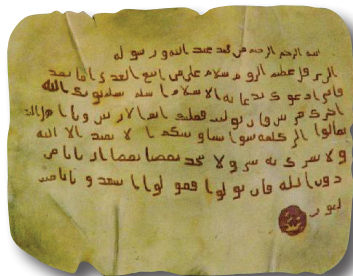 بسم الله الرحمن الرحيم من محمد عبد الله ورسوله
الى هرقل عظيم الروم سلام على من اتبع الهدى اما بعد
فاني ادعوك بدعاية الاسلام اسلم تسلم يوتك الله
اجرك مرتين فان توليت فعليك اثم الاريسين ويا اهل
تعالوا الى كلمة سوا بيننا وبينكم الا نعبد الا الله
ولا نشرك به شيا ولا يتخذ بعضنا بعضا اربابا من
دون الله فان تولوا فقولوا اشهدوا بانا مس
لمون